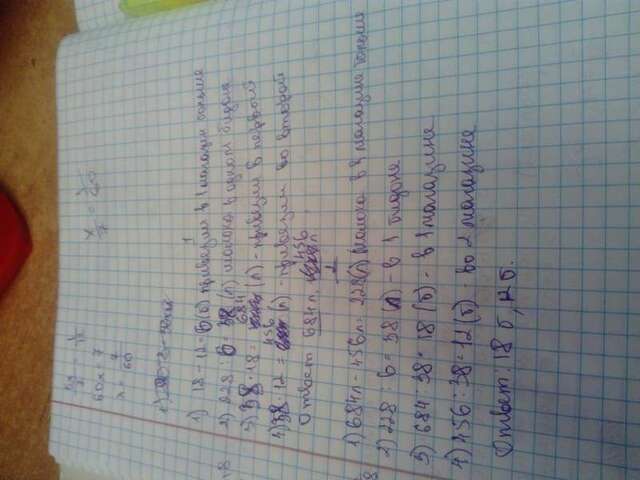 1) 18-12=6(б) привезли в 1 магазин больше
2) 228:6=38(л) молока в одном бидоне
3) 38·18=684(л)-привезли в первой
4) 38·12=456(л)-привезли во второй
Ответ 684л, 456л
1) 684л-456л=228(л) молока в 1 магазине больше
2) 228:6=38(л)-в 1 бидоне
3) 684:38=18(б)-в 1 магазине
4) 456:38=12(б)-во 2 магазине
Ответ: 18б, 12б.